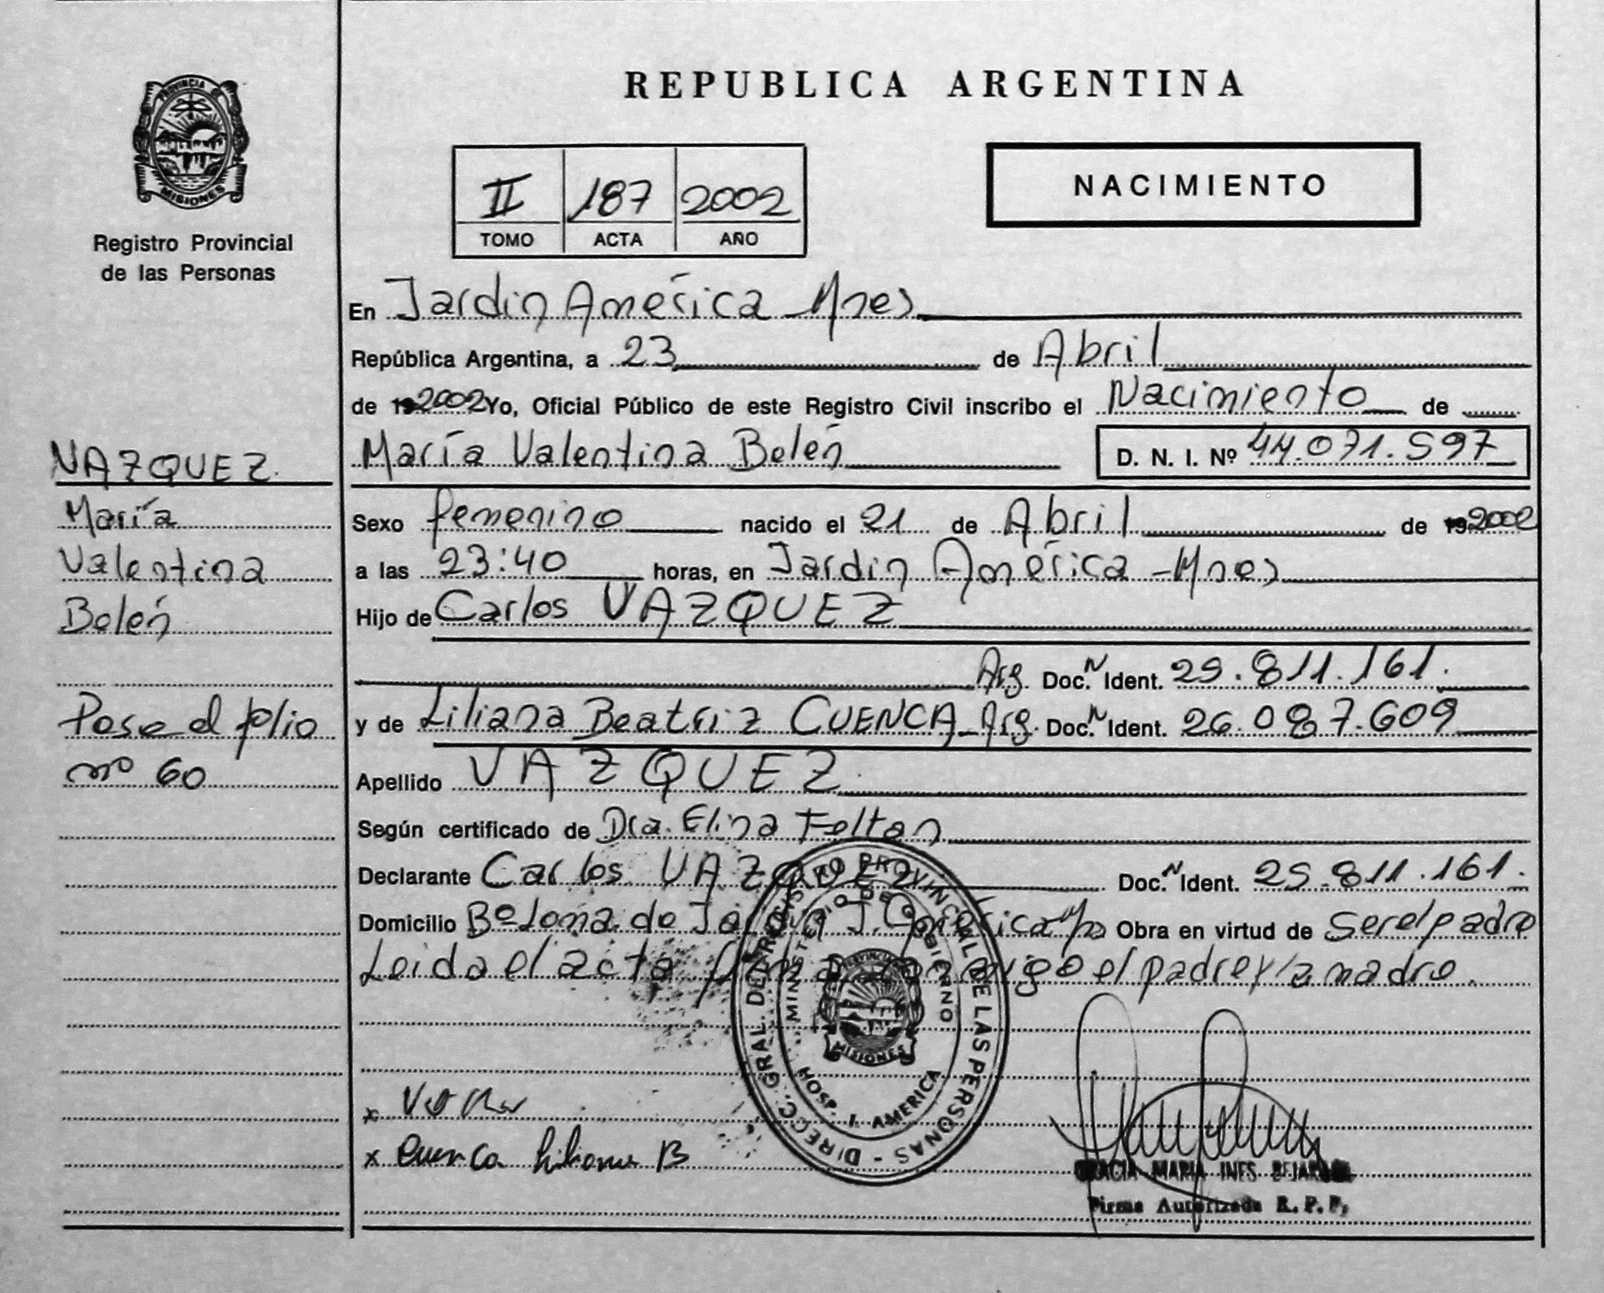 REPUBLICA ARGENTINA
PROVINCIA DE
MISIONES
Registro Provincial
de las Personas
II 187 2002
TOMO ACTA AÑO
NACIMIENTO
En Jardin América Mnes
República Argentina, a 23 de Abril
de 19 2002 Yo, Oficial Público de este Registro Civil inscribo el Nacimiento de
María Valentina Belén D. N. I. Nº 44.071.597
Sexo femenino nacido el 21 de Abril de 19 2002
a las 23:40 horas, en Jardin América - Mnes
Hijo de Carlos VAZQUEZ
Arg. Doc. N Ident. 29.811.161.
y de Liliana Beatriz CUENCA - Arg. Doc. N Ident. 26.087.609
Apellido VAZQUEZ
Según certificado de Dra. Elina Feltan
Declarante Carlos VAZQUEZ Doc. N Ident. 29.811.161.
Domicilio Bº Loma de Jardin J. América Obra en virtud de ser el padre
Leida el acta firman conmigo el padre y la madre.
VAZQUEZ
María
Valentina
Belén
Pase al folio
nº 60
DIRECC. GRAL. DEL REGISTRO PROVINCIAL DE LAS PERSONAS
MINISTERIO DE GOBIERNO
HOSP. J. AMERICA
MISIONES
x
x Cuenca Liliana B
GRACIA MARIA INES BEJARANO
Firma Autorizada R. P. P.